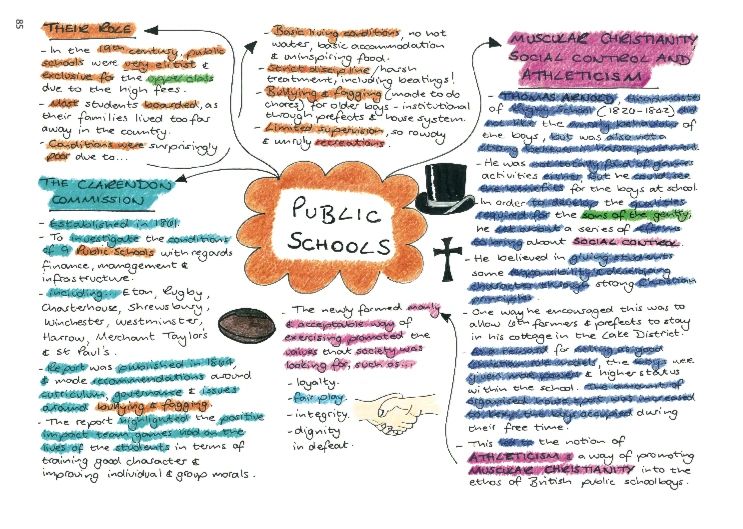 85
THEIR ROLE
- In the 19th century, public
schools were very elitist &
exclusive for the upper class
due to the high fees.
- Most students boarded, as
their families lived too far
away in the country.
- Conditions were surprisingly
poor due to...
- Basic living conditions, no hot
water, basic accommodation
& uninspiring food.
- Strict discipline/harsh
treatment, including beatings!
- Bullying & fagging (made to do
chores) for older boys - institutional
through prefects & house system.
- Limited supervision, so rowdy
& unruly recreations.
MUSCULAR CHRISTIANITY
SOCIAL CONTROL AND
ATHLETICISM
- THOMAS ARNOLD, headmaster
of Rugby School (1820-1842) did
not like the unruly behaviour of
the boys, but was also not a
- He was not totally fond of games
activities either, but he could see
the benefits for the boys at school.
- In order to develop the qualities
required for the sons of the gentry,
he set about a series of reforms
to bring about SOCIAL CONTROL.
- He believed in giving students
some responsibility & developing
characters through strong Christian
principles.
- One way he encouraged this was to
allow 6th formers & prefects to stay
in his cottage in the Lake District.
- As a reward for setting as good
Christian role models, the boys were
given more power & higher status
within the school. The amount of
organised house sport was increased
to keep the boys occupied during
their free time.
- This led to the notion of
ATHLETICISM & a way of promoting
MUSCULAR CHRISTIANITY into the
ethos of British public schoolboys.
THE CLARENDON
COMMISSION
- Established in 1861.
- To investigate the conditions
of 9 Public Schools with regards
finance, management &
infrastructure.
- Including: Eton, Rugby,
Charterhouse, Shrewsbury,
Winchester, Westminster,
Harrow, Merchant Taylor's
& St Paul's.
- Report was published in 1864
& made recommendations around
curriculum, governance & issues
around bullying & fagging.
- The report highlighted the positive
impact team games had on the
lives of the students in terms of
training good character &
improving individual & group morals.
PUBLIC
SCHOOLS
- The newly formed manly
& acceptable way of
exercising promoted the
values that society was
looking for, such as...
- loyalty.
- fair play.
- integrity.
- dignity
in defeat.